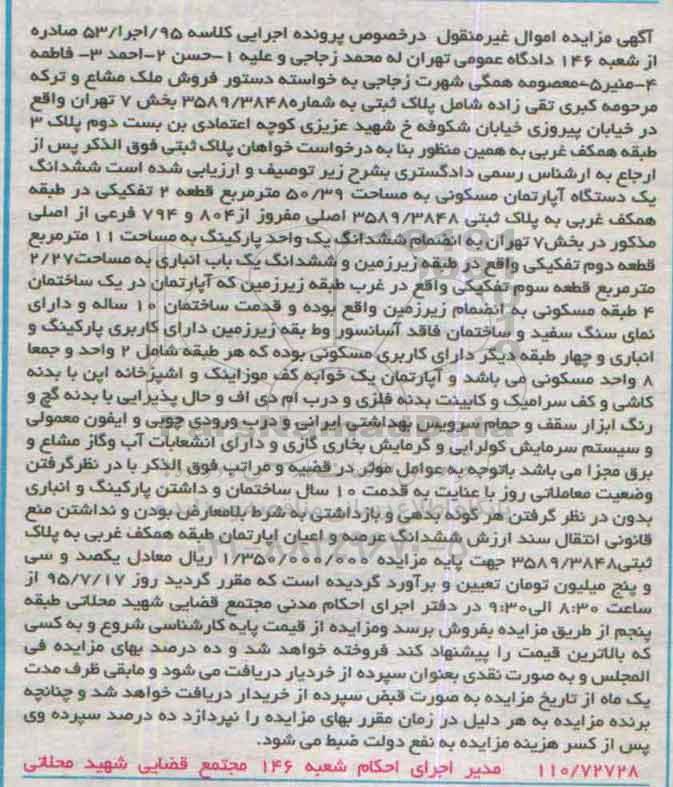 آگهی مزایده اموال غیرمنقول درخصوص پرونده اجرایی کلاسه ۹۵/اجرا/۵۳ صادره
از شعبه ۱۴۶ دادگاه عمومی تهران له محمد زجاجی و علیه ۱-حسن ۲-احمد ۳- فاطمه
۴-منیر۵-معصومه همگی شهرت زجاجی به خواسته دستور فروش ملک مشاع و ترکه
مرحومه کبری تقی زاده شامل پلاک ثبتی به شماره۳۵۸۹/۳۸۴۸ بخش ۷ تهران واقع
در خیابان پیروزی خیابان شکوفه خ شهید عزیزی کوچه اعتمادی بن بست دوم پلاک ۳
طبقه همکف غربی به همین منظور بنا به درخواست خواهان پلاک ثبتی فوق الذکر پس از
ارجاع به ارشناس رسمی دادگستری بشرح زیر توصیف و ارزیابی شده است ششدانگ
یک دستگاه آپارتمان مسکونی به مساحت ۵۰/۳۹ مترمربع قطعه ۲ تفکیکی در طبقه
همکف غربی به پلاک ثبتی ۳۵۸۹/۳۸۴۸ اصلی مفروز از۸۰۴ و ۷۹۴ فرعی از اصلی
مذکور در بخش۷ تهران به انضمام ششدانگ یک واحد پارکینگ به مساحت ۱۱ مترمربع
قطعه دوم تفکیکی واقع در طبقه زیرزمین و ششدانگ یک باب انباری به مساحت۲/۲۷
مترمربع قطعه سوم تفکیکی واقع در غرب طبقه زیرزمین که آپارتمان در یک ساختمان
۴ طبقه مسکونی به انضمام زیرزمین واقع بوده و قدمت ساختمان ۱۰ ساله و دارای
نمای سنگ سفید و ساختمان فاقد آسانسور وط بقه زیرزمین دارای کاربری پارکینگ و
انباری و چهار طبقه دیگر دارای کاربری مسکونی بوده که هر طبقه شامل ۲ واحد و جمعا
۸ واحد مسکونی می باشد و آپارتمان یک خوابه کف موزاینک و اشپزخانه اپن با بدنه
کاشی و کف سرامیک و کابینت بدنه فلزی و درب ام دی اف و حال پذیرایی با بدنه گچ و
رنگ ابزار سقف و حمام سرویس بهداشتی ایرانی و درب ورودی چوبی و ایفون معمولی
و سیستم سرمایش کولرابی و گرمایش بخاری گازی و دارای انشعابات آب وگاز مشاع و
برق مجزا می باشد باتوجه به عوامل موثر در قضیه و مراتب فوق الذکر با در نظرگرفتن
وضعیت معاملاتی روز با عنایت به قدمت ۱۰ سال ساختمان و داشتن پارکینگ و انباری
بدون در نظر گرفتن هر گونه بدهی و بازداشتی به شرط بلامعارض بودن و نداشتن منع
قانونی انتقال سند ارزش ششدانگ عرصه و اعیان اپارتمان طبقه همکف غربی به پلاک
ثبتی۳۵۸۹/۳۸۴۸ جهت پایه مزایده ۱/۳۵۰/۰۰۰/۰۰۰ ریال معادل یکصد و سی
و پنج میلیون تومان تعیین و برآورد گردیده است که مقرر گردید روز ۹۵/۷/۱۷ از
ساعت ۸:۳۰ الی۹:۳۰ در دفتر اجرای احکام مدنی مجتمع قضایی شهید محلاتی طبقه
پنجم از طریق مزایده بفروش برسد ومزایده از قیمت پایه کارشناسی شروع و به کسی
که بالاترین قیمت را پیشنهاد کند فروخته خواهد شد و ده درصد بهای مزایده فی
المجلس و به صورت نقدی بعنوان سپرده از خردیار دریافت می شود و مابقی ظرف مدت
یک ماه از تاریخ مزایده به صورت قبض سپرده از خریدار دریافت خواهد شد و چنانچه
برنده مزایده به هر دلیل در زمان مقرر بهای مزایده را نپردازد ده درصد سپرده وی
پس از کسر هزینه مزایده به نفع دولت ضبط می شود.
۱۱۰/۷۲۷۲۸ مدیر اجرای احکام شعبه ۱۴۶ مجتمع قضایی شهید محلاتی